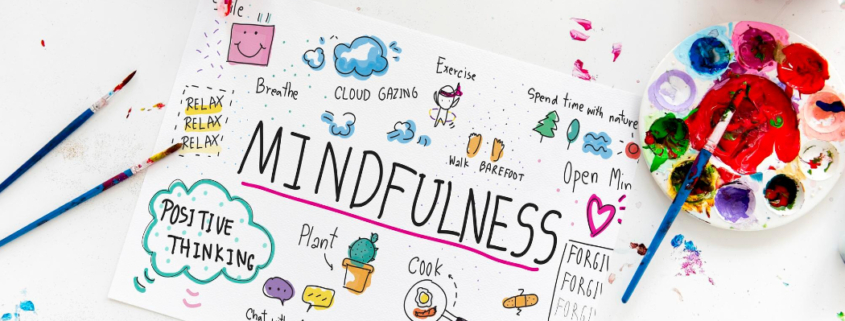 Breathe
CLOUD GAZING
Exercise
Spend time with nature
RELAX
RELAX
RELAX
MINDFULNESS
Walk BAREFOOT
Open Min
POSITIVE
THINKING
Plant
Cook
FORGI
FORGI
FORGI
Chat